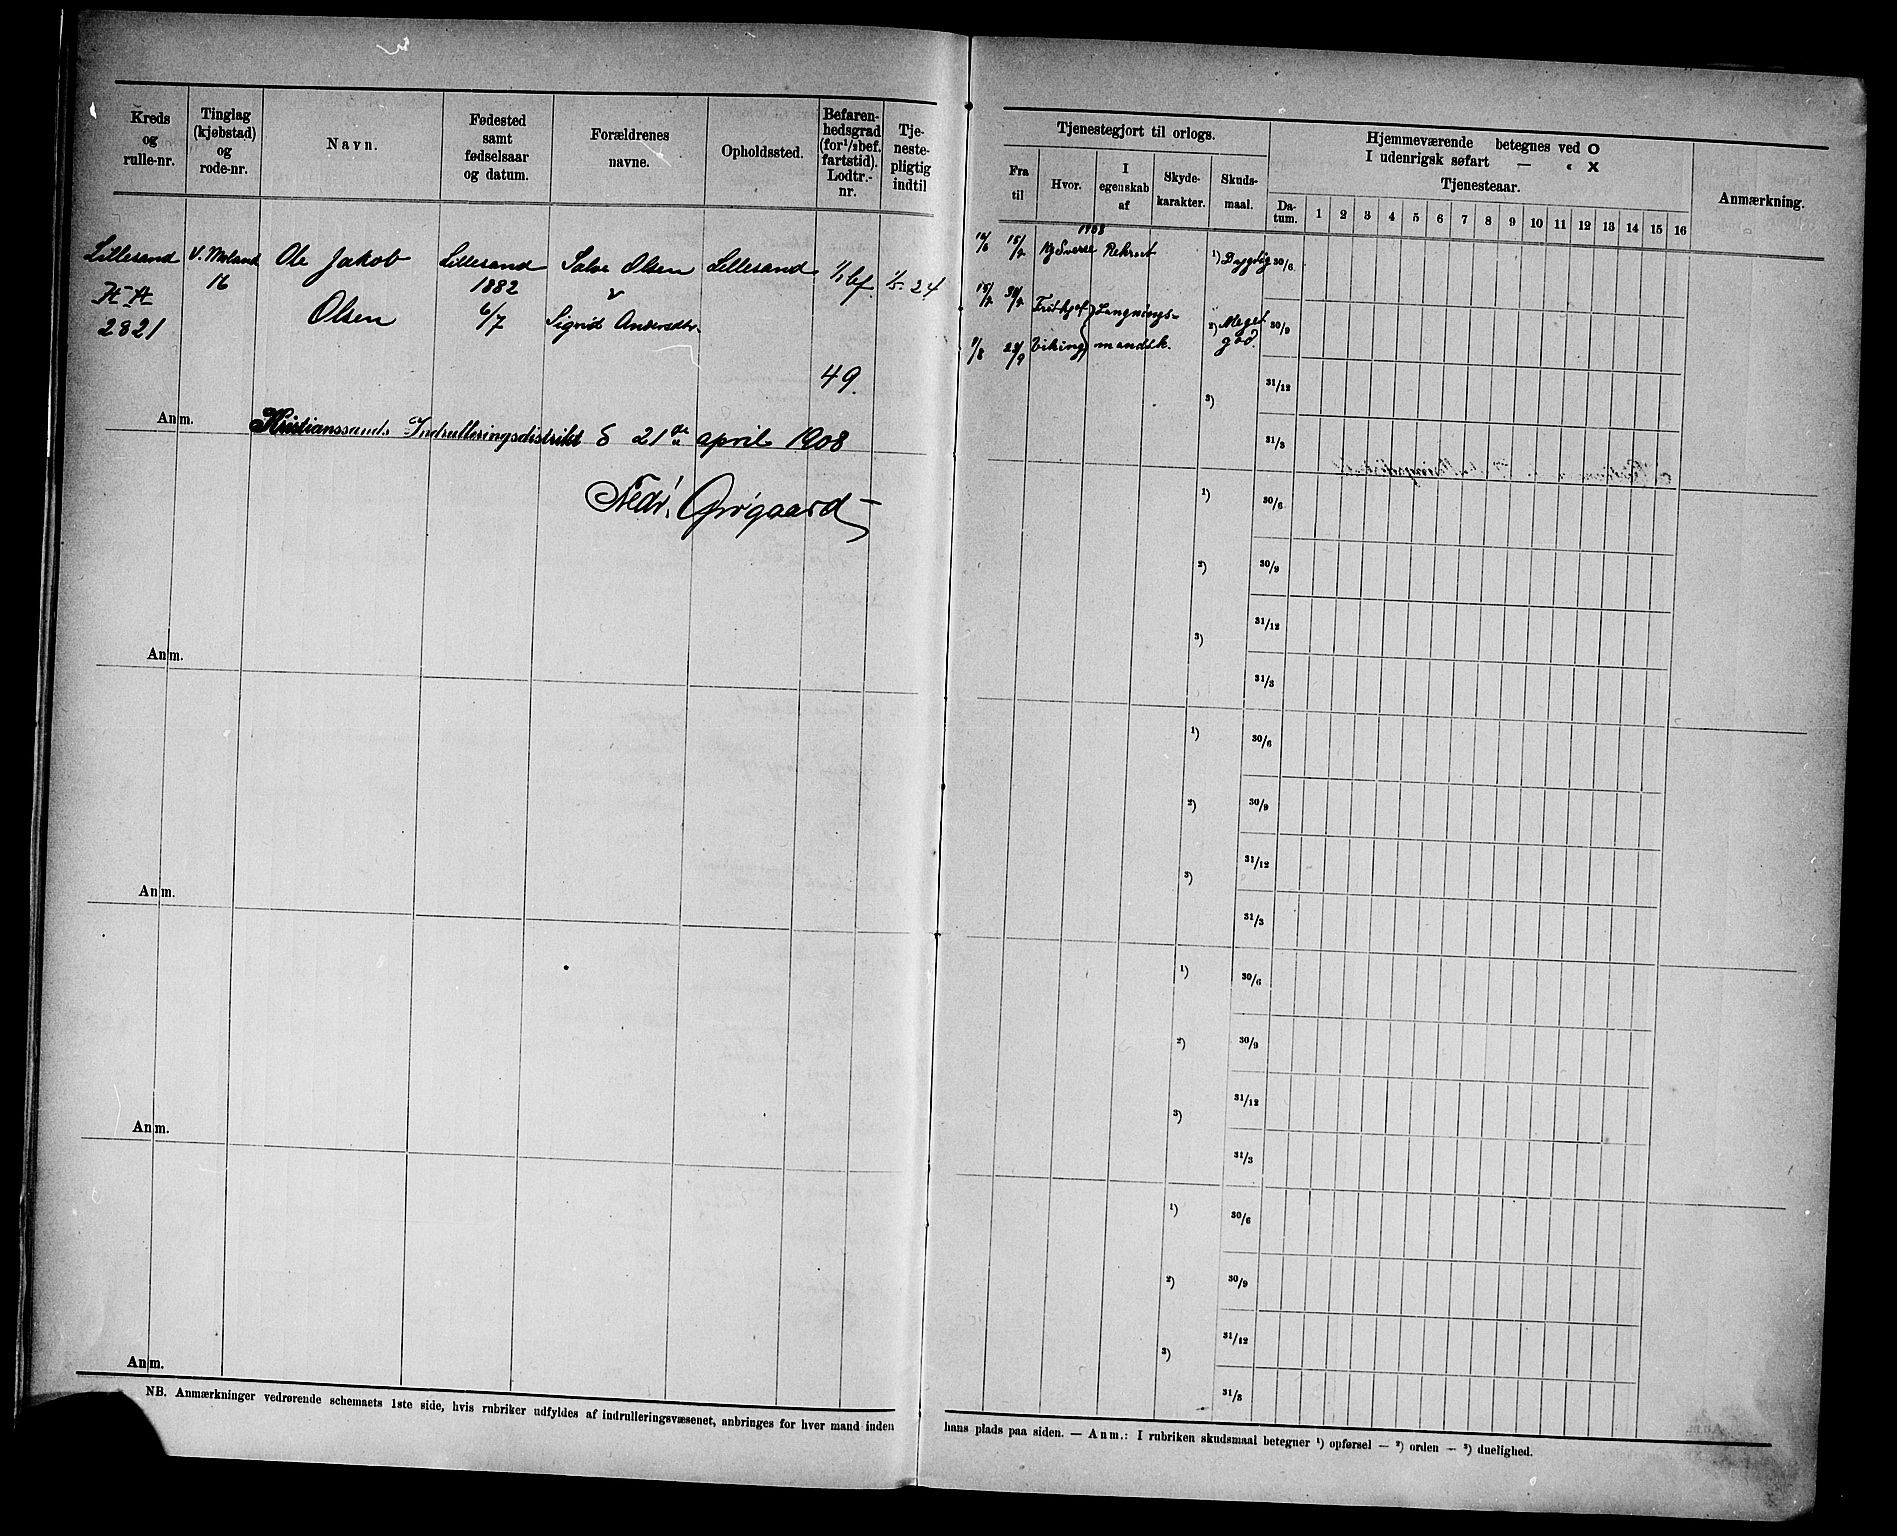 Kreds og rulle-nr.
Tinglag (kjøbstad) og rode-nr.
Navn.
Fødested samt fødselsaar og datum.
Forældrenes navne.
Opholdssted.
Befaren-hedsgrad (for 1/2 bef. fartstid). Lodtr.-nr.
Tje-neste-pligtig indtil
Lillesand V. Moland Ole Jakob Lillesand Salve Olsen Lillesand 1/1 bef. 1/5-24
16 1882
2821 Olsen 6/7 Sigrid Andersdtr.
49
Anm.
Kristianssands Indrulleringsdistrikt d 21de april 1908
Fredr. Grøgaard
Anm.
Anm.
Anm.
Anm.
NB. Anmærkninger vedrørende schemaets 1ste side, hvis rubriker udfyldes af indrulleringsvæsenet, anbringes for hver mand inden
Tjenestegjort til orlogs.
Hjemmeværende betegnes ved O
I udenrigsk søfart — „ X
Tjenesteaar.
Anmærkning.
Fra til
Hvor.
I egenskab af
Skyde-karakter.
Skuds-maal.
Da-tum. 1 2 3 4 5 6 7 8 9 10 11 12 13 14 15 16
1908
15/7 Kj Sverre Rekrut 1) Dygdig 30/6
15/7 Fridtjof Langnings- 2) Meget god. 30/9
Viking mandsk.
31/12
3)
31/3
1)
30/6
2) 30/9
31/12
3)
31/3
1) 30/6
2) 30/9
31/12
3)
31/3
1) 30/6
2) 30/9
31/12
3)
31/3
1) 30/6
2) 30/9
31/12
3)
31/3
hans plads paa siden. — Anm.: I rubriken skudsmaal betegner 1) opførsel — 2) orden — 3) duelighed.